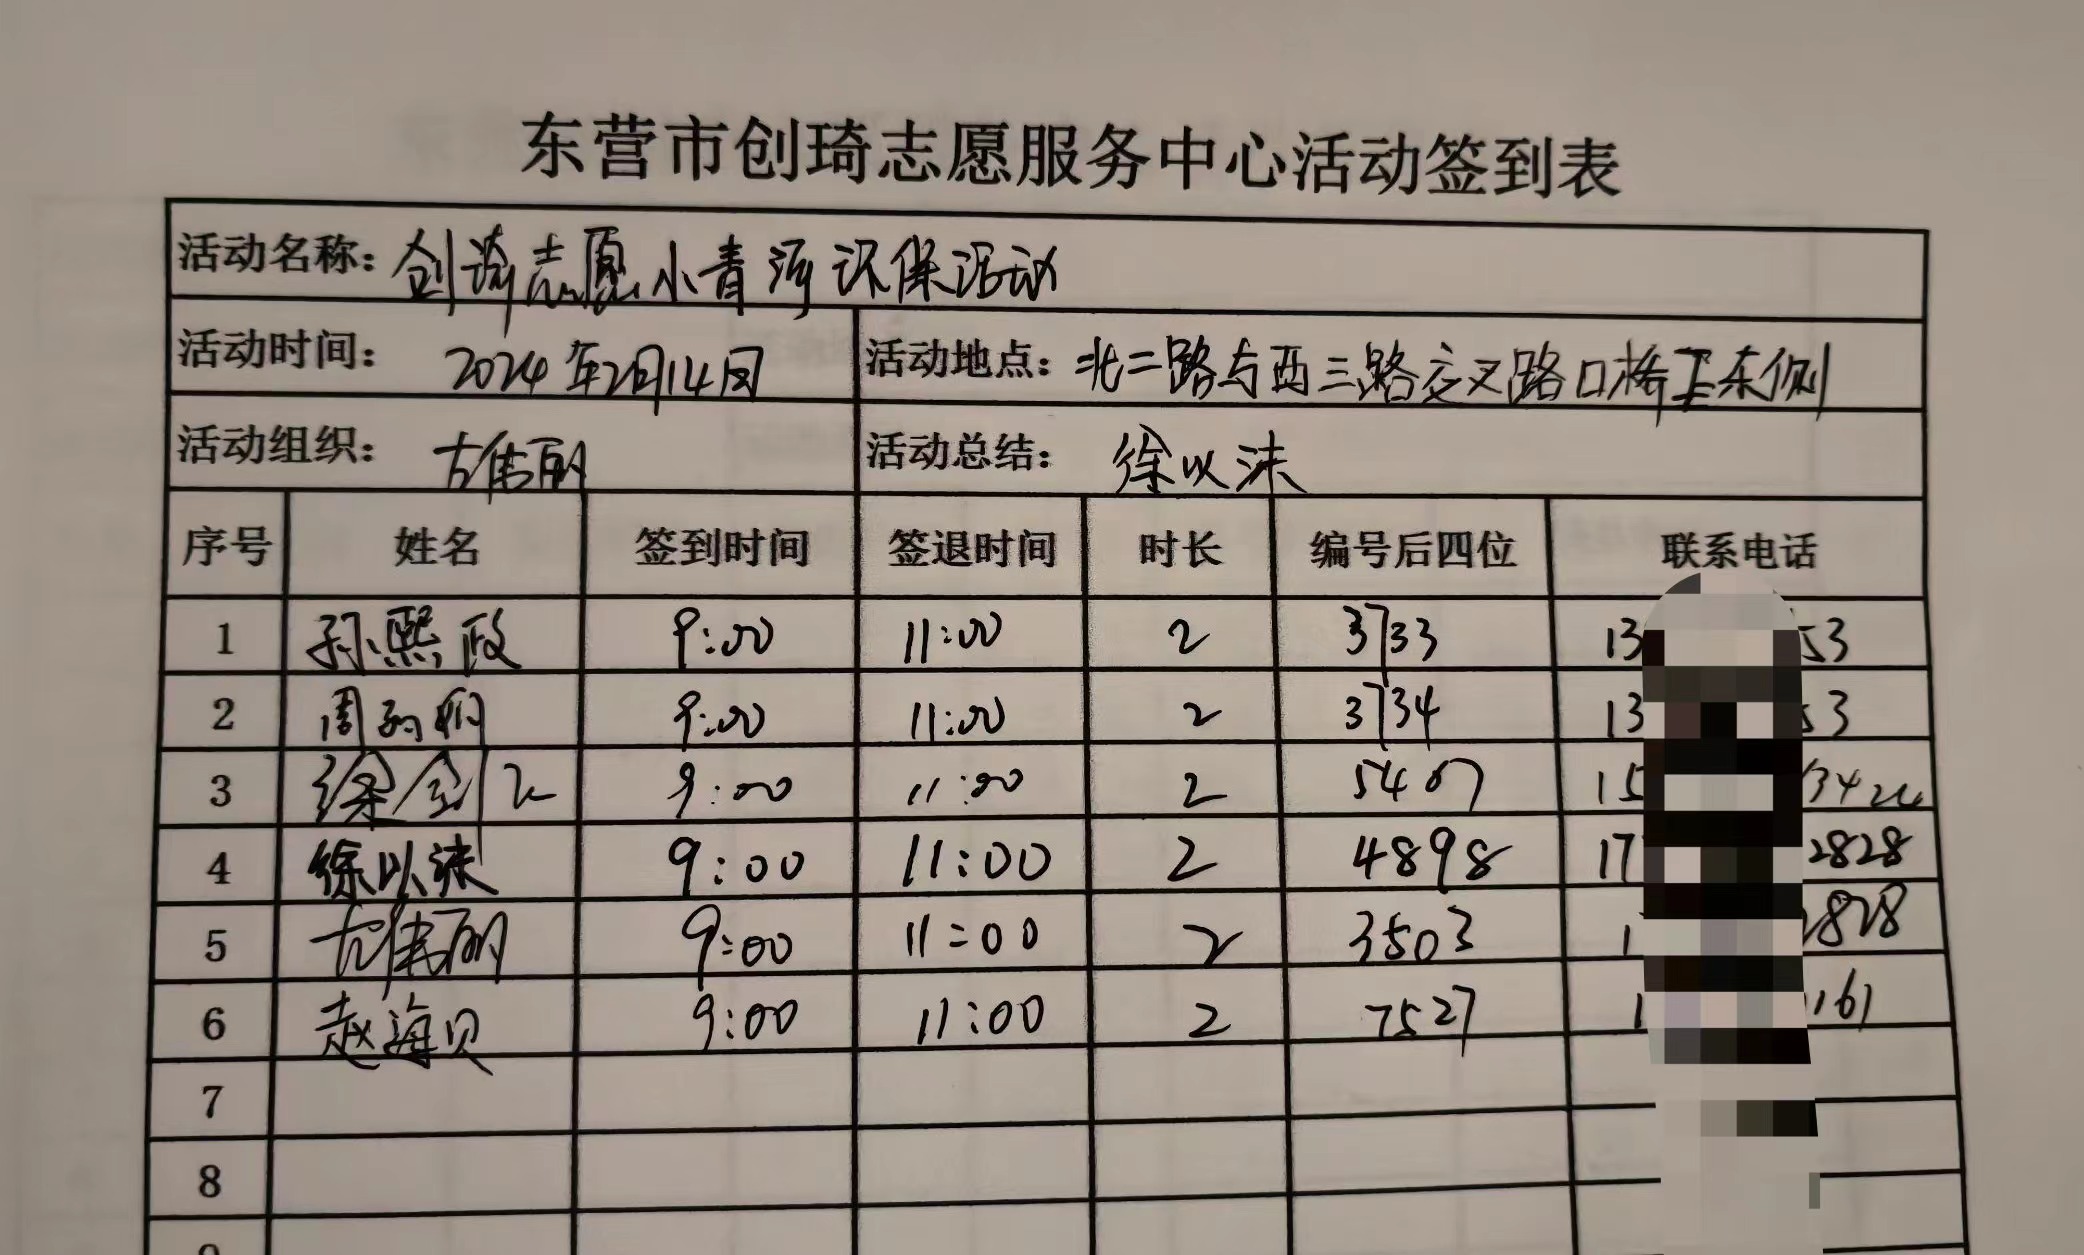 东营市创琦志愿服务中心活动签到表
活动名称: 创琦志愿小青河环保活动
活动时间: 2024年2月14日 活动地点: 北二路与西三路交叉路口桥 东侧
活动组织: 尤伟丽 活动总结: 徐以沫
序号 姓名 签到时间 签退时间 时长 编号后四位 联系电话
1 孙熙政 9:00 11:00 2 3733 13 53
2 周 9:00 11:00 2 3734 13 53
3 徐剑飞 9:00 11:00 2 5407 15
4 徐以沫 9:00 11:00 2 4898 17 2828
5 尤伟丽 9:00 11:00 2 3503 1 2828
6 赵海贝 9:00 11:00 2 7527 1 161
7
8